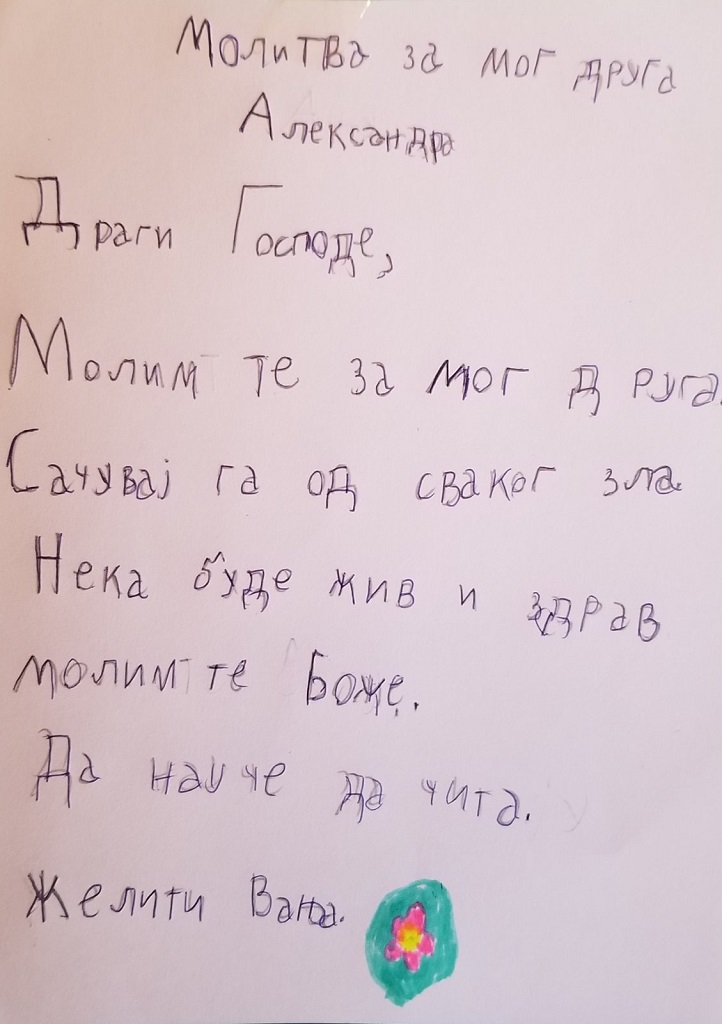 Молитва за мог друга
Александра
Драги Господе,
Молим те за мог друга.
Сачувај га од сваког зла
Нека буде жив и здрав
молим те Боже.
Да науче да чита.
Желити Вања.